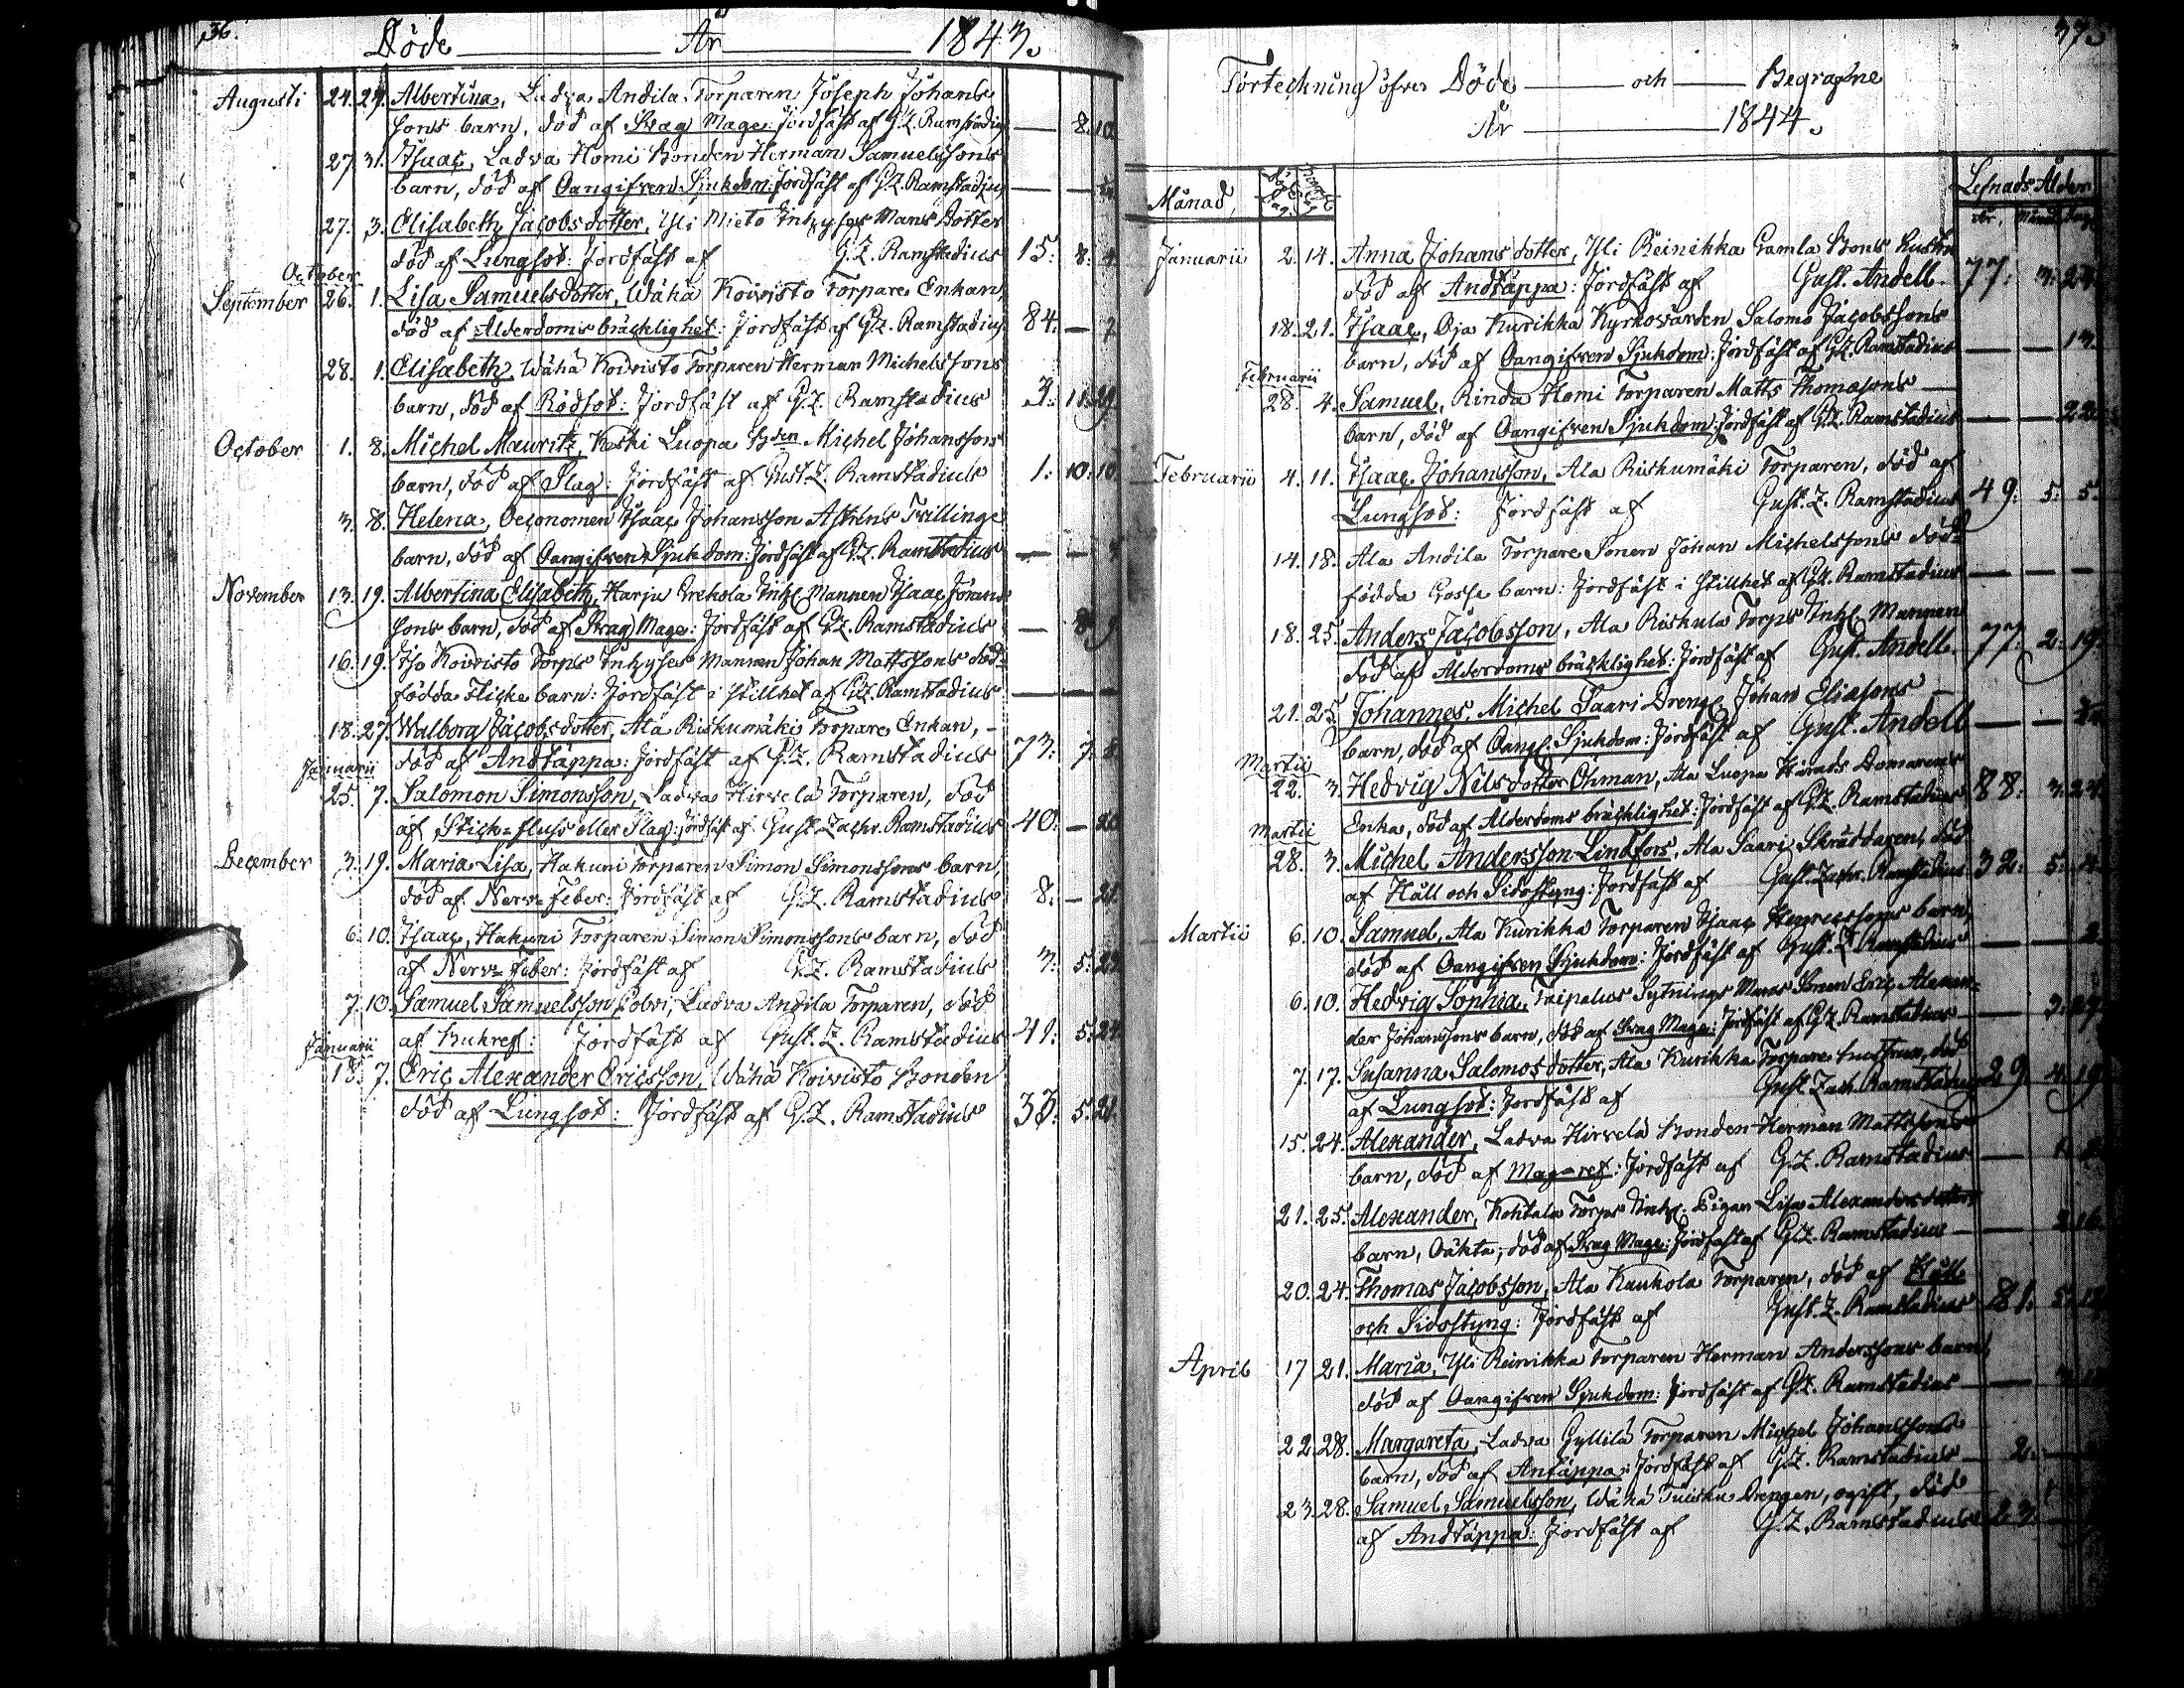 36.
Döde År 1843.
Augusti 24. 29. Albertina, Ladva Andila Torparen Joseph Johans
sons barn, död af Svag Mage: Jordfäst af G.Z. Ramstadius — 8. 10.
27. 31. Isaac, Ladva Homi Bonden Herman Samuelssons
barn, död af Oangifven Sjukdom: Jordfäst af G.Z. Ramstadius — —
27. 3. Elisabeth Jacobsdotter, Yli Mieto Inhyses Mans Dotter
död af Lungsot: Jordfäst af G.Z. Ramstadius 15: 8:
October
September 26. 1. Lisa Samuelsdotter, Wähä Koivisto Torpare Enkan,
död af Alderdoms bräcklighet: Jordfäst af G.Z. Ramstadius 84. — 7
28. 1. Elisabeth, Wähä Koivisto Torparen Herman Michelssons
barn, död af Rödsot: Jordfäst af G.Z. Ramstadius 3: 11. 29.
October 1. 8. Michel Mauritz, Koski Luopa Bden Michel Johanssons
barn, död af Slag: Jordfäst af Gust. Z. Ramstadius 1: 10: 10
3. 8. Helena, Oeconomen Isaac Johansson Astréns Tvillinge
barn, död af Oangifven Sjukdom: Jordfäst af G.Z. Ramstadius — —
November 13. 19. Albertina Elisabeth, Harju Inhyses Mannen Isaac Johans
sons barn, död af Svag Mage: Jordfäst af G.Z. Ramstadius —
16. 19. Iso Koivisto Torps Inhyses Mannen Johan Mattssons död=
födda Flicke barn: Jordfäst i stillhet af G.Z. Ramstadius — — —
18. 27. Walborg Jacobsdotter, Ala Riskumäki Torpare Enkan, —
död af Andtäppa: Jordfäst af G.Z. Ramstadius 73: 7: 8
Januarii
25. 7. Salomon Simonsson, Ladva Hirvelä Torparen, död
af Stick=fluss eller Slag: Jordfäst af Gust. Zachr. Ramstadius 40: — 26
December 3. 19. Maria Lisa, Hakuni Torparen Simon Simonssons barn,
död af Nerv=Feber: Jordfäst af G.Z. Ramstadius 8: — 21.
6. 10. Isaac, Hakuni Torparen Simon Simonssons barn, död
af Nerv=Feber: Jordfäst af G.Z. Ramstadius 3: 5: 23
7. 10. Samuel Samuelsson Ladva Andila Torparen, död
af Bukref: Jordfäst af Gust. Z. Ramstadius 41: 5: 24
Januarii
18. 7. Eric Alexander Ericsson, Wähä Koivisto Bonden
död af Lungsot: Jordfäst af G.Z. Ramstadius 33: 5: 21.
Förteckning öfver Döde och Begrafne
År 1844.
Månad, Lefnads Ålder
År. Månad. Dagar
Januarii 2. 14. Anna Johansdotter, Yli Reinikka Gamla Bonds Hustru
död af Andtäppa: Jordfäst af Gust. Andell. 77: 3: 24
18. 21. Isaac, Oja Kurikka Kyrkovärden Salomo Jacobssons
barn, död af Oangifven Sjukdom: Jordfäst af G.Z. Ramstadius — — 13.
Februarii
28. 4. Samuel, Rinda Homi Torparen Matts Thomæsons
barn, död af Oangifven Sjukdom: Jordfäst af G.Z. Ramstadius — — 22
Februarii 4. 11. Isaac Johansson, Ala Riskumäki Torparen, död af
Lungsot: Jordfäst af Gust. Z. Ramstadius 49: 5: 5.
14. 18. Ala Andila Torpare Sonen Johan Michelssons död=
födda Gosse barn: Jordfäst i stillhet af G.Z. Ramstadius — — —
18. 25. Anders Jacobsson, Ala Riskula Torps Inh. Mannen
död af Alderdoms bräcklighet: Jordfäst af Gust. Andell. 77: 2: 19.
21. 25. Johannes, Michel Saari Dreng Johan Eliæsons
barn, död af Oangf. Sjukdom: Jordfäst af Gust. Andell — —
Martii
22. 3. Hedvig Nilsdotter Öhman, Ala Luopa Härads Domarens
Enka, död af Alderdoms bräcklighet: Jordfäst af G.Z. Ramstadius 88: 3: 24
Martii
28. 3. Michel Andersson Lindfors, Ala Saari Skräddaren, död
af Håll och Sidostyng: Jordfäst af Gust. Zachr. Ramstadius 32: 5:
Martii 6. 10. Samuel, Ala Kurikka Torparen Isaac Henricssons barn,
död af Oangifven Sjukdom: Jordfäst af Gust. Z. Ramstadius — — 2
6. 10. Hedvig Sophia, Taipalus Sytnings Mans Sonen Eric Alexan=
der Johanssons barn, död af Svag Mage: Jordfäst af G.Z. Ramstadius —
7. 17. Susanna Salomosdotter, Ala Kurikka Torpare hustrun, död
af Lungsot: Jordfäst af Gust. Zach. Ramstadius 29 4: 19
15. 24. Alexander, Ladva Hirvelä Bonden Herman Mattssons
barn, död af Mag=ref: Jordfäst af G.Z. Ramstadius — 1.
21. 25. Alexander, Kohtala Torps Inh. Pigan Lisa Alexandersdotters
barn, Oäkta; död af Svag Mage: Jordfäst af G.Z. Ramstadius — 2 16.
20. 24. Thomas Jacobsson, Ala Kaukola Torparen, död af Håll
och Sidostyng: Jordfäst af Gust. Z. Ramstadius 81: 5:
April 17 21. Maria, Yli Reinikka Torparen Herman Anderssons barn,
död af Oangifven Sjukdom: Jordfäst af G.Z. Ramstadius —
22. 28. Margareta, Ladva Gyllilä Torparen Michel Johanssons
barn, död af Antäppa: Jordfäst af G.Z. Ramstadius — 2: —
23. 28. Samuel Samuelsson, Wähä Tuisku Drengen, ogift, död
af Andtäppa: Jordfäst af G.Z. Ramstadius 23.